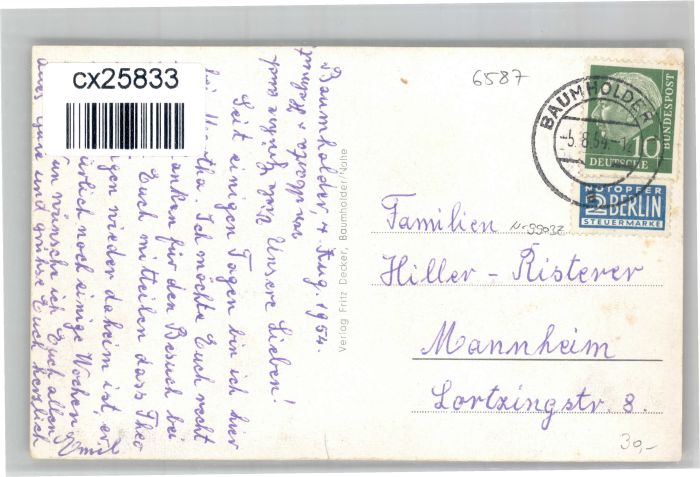 cx25833
6587
BAUMHOLDER
-5.8.54
10
DEUTSCHE
BUNDESPOST
NOTOPFER
2 BERLIN
STEUERMARKE
Familien
Hiller - Risterer
Mannheim
Lortzingstr. 8.
30,-
Verlag Fritz Decker, Baumholder/Nahe
Baumholder, 4. Aug. 1954.
Unsere Lieben!
Seit einigen Tagen bin ich hier
bei Ich möchte Euch recht
für den Besuch bei
Euch mitteilen dass Theo
wieder daheim ist, er
noch einige Wochen
wünsche ich Euch allen
alles gute und grüsse Euch herzlich
Emil